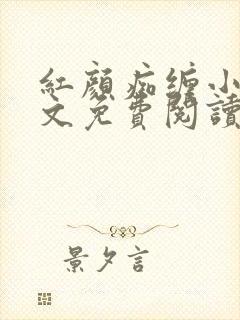 紅顏痴缠小
文免費閱讀
景夕言